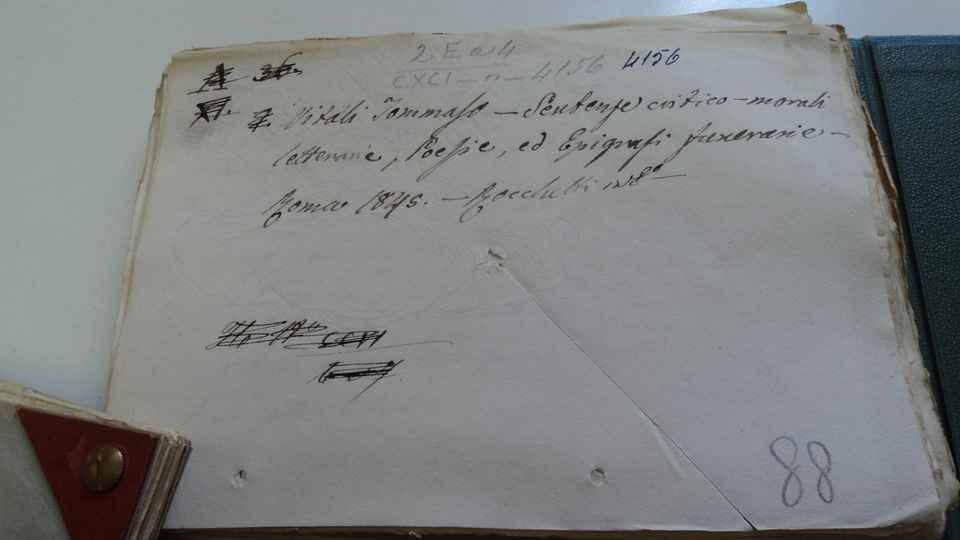 2 E a 4
CXCI - n - 4156 4156
Vitali Tommaso - Sentenze critico-morali
letterarie, Poesie, ed Epigrafi funerarie -
Roma 1845. - Rocchetti in 8º
88